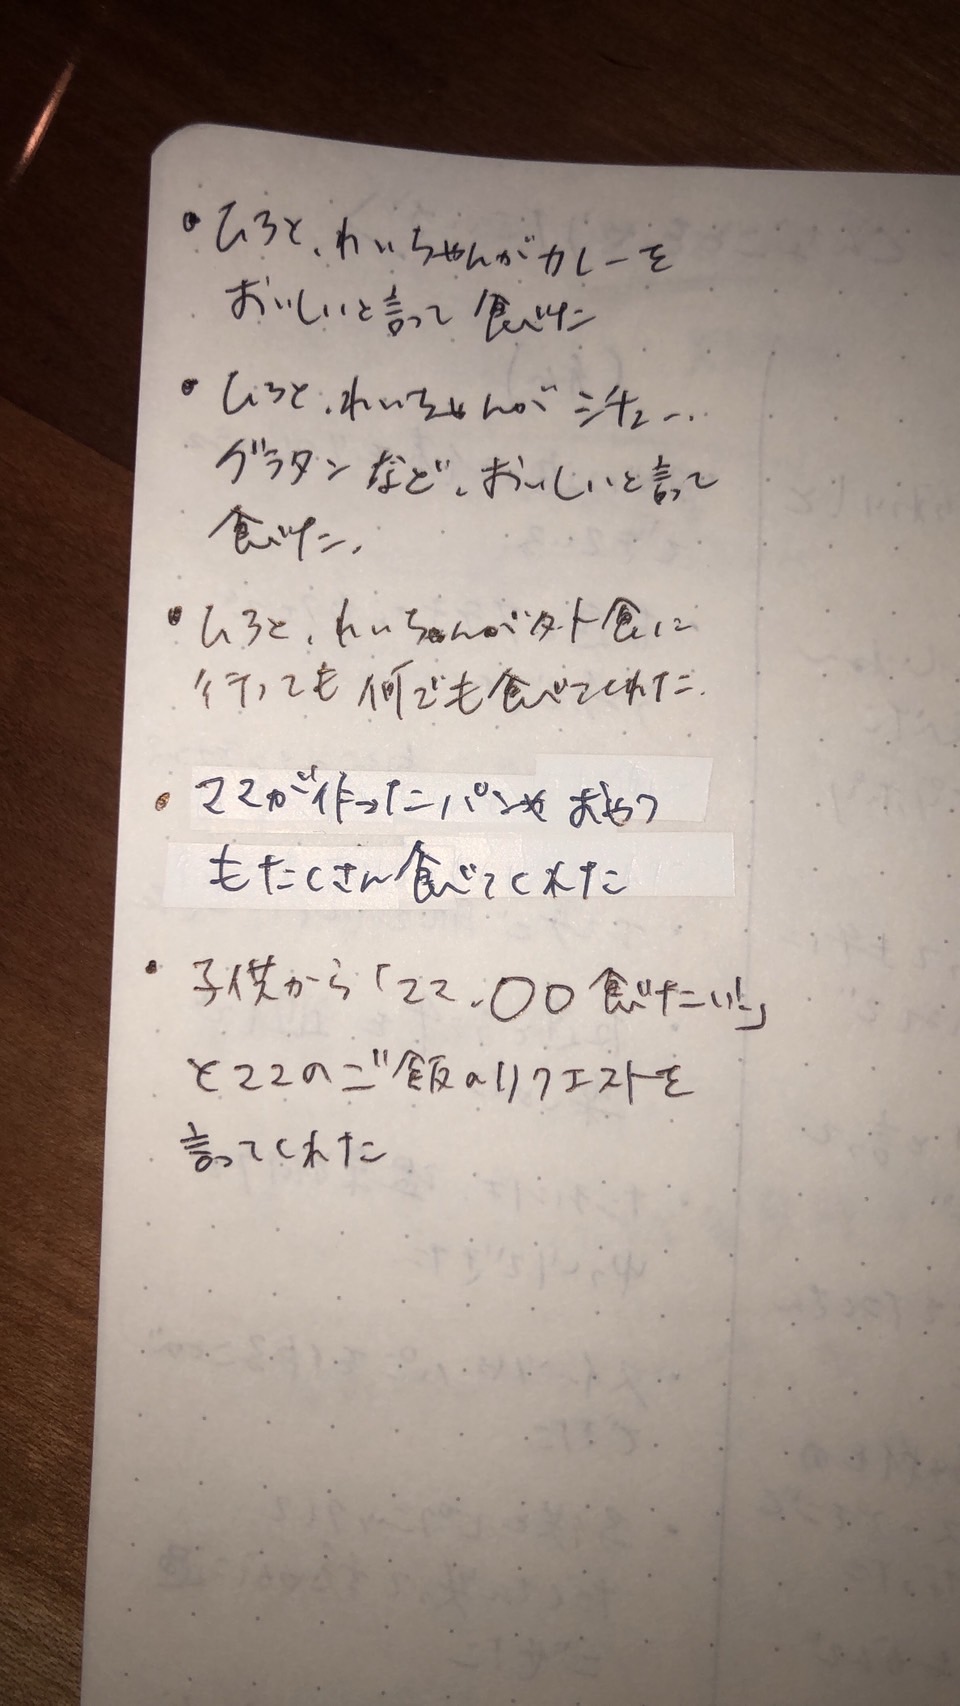 ・ひろと、れいちゃんがカレーを
おいしいと言って 食べた
・ひろと、れいちゃんが シチュー、
グラタン など、おいしいと言って
食べた、
・ひろと、れいちゃんが外食に
行っても 何でも食べてくれた
・ママが作ったパンや おやつ
もたくさん食べてくれた
・子供から「ママ、〇〇 食べたい!」
とママのご飯のリクエストを
言ってくれた